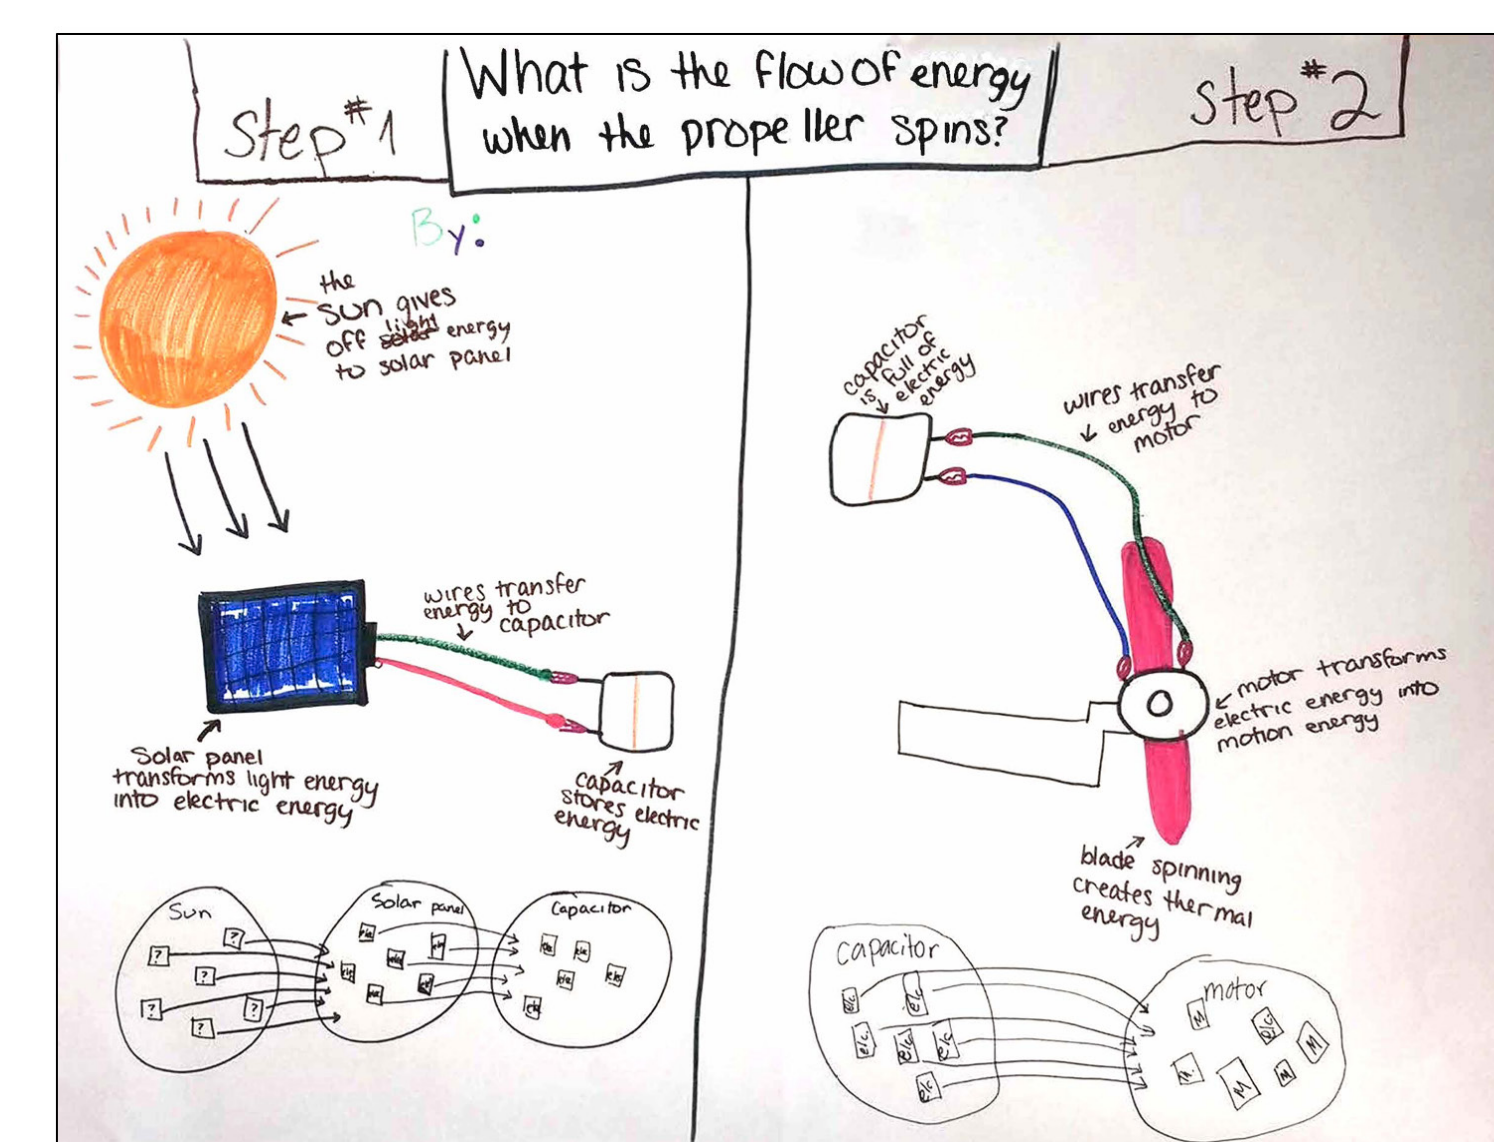 Step #1
What is the flow of energy
when the propeller spins?
Step #2
By:
the
sun gives
off light energy
to solar panel
wires transfer
energy to
capacitor
Solar panel
transforms light energy
into electric energy
capacitor
stores electric
energy
Sun
?
?
?
?
?
?
Solar panel
ele
ele
ele
ele
ele
ele
Capacitor
ele
ele
ele
ele
ele
capacitor
is full of
electric
energy
wires transfer
energy to
motor
motor transforms
electric energy into
motion energy
blade spinning
creates thermal
energy
capacitor
e/c
e/c
e/c
e/c
e/c
e/c
motor
M
e/c
M
M
M
M